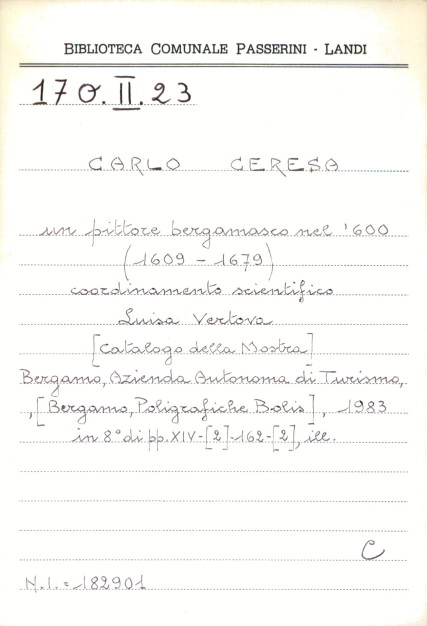 BIBLIOTECA COMUNALE PASSERINI - LANDI
170.II.23
CARLO CERESA
un pittore bergamasco nel '600
(1609 - 1679)
coordinamento scientifico
Luisa Vertova
[Catalogo della Mostra]
Bergamo, Azienda Autonoma di Turismo,
,[Bergamo, Poligrafiche Bolis], 1983
in 8° di pp. XIV-[2]-162-[2], ill.
C
N.I. = 182901